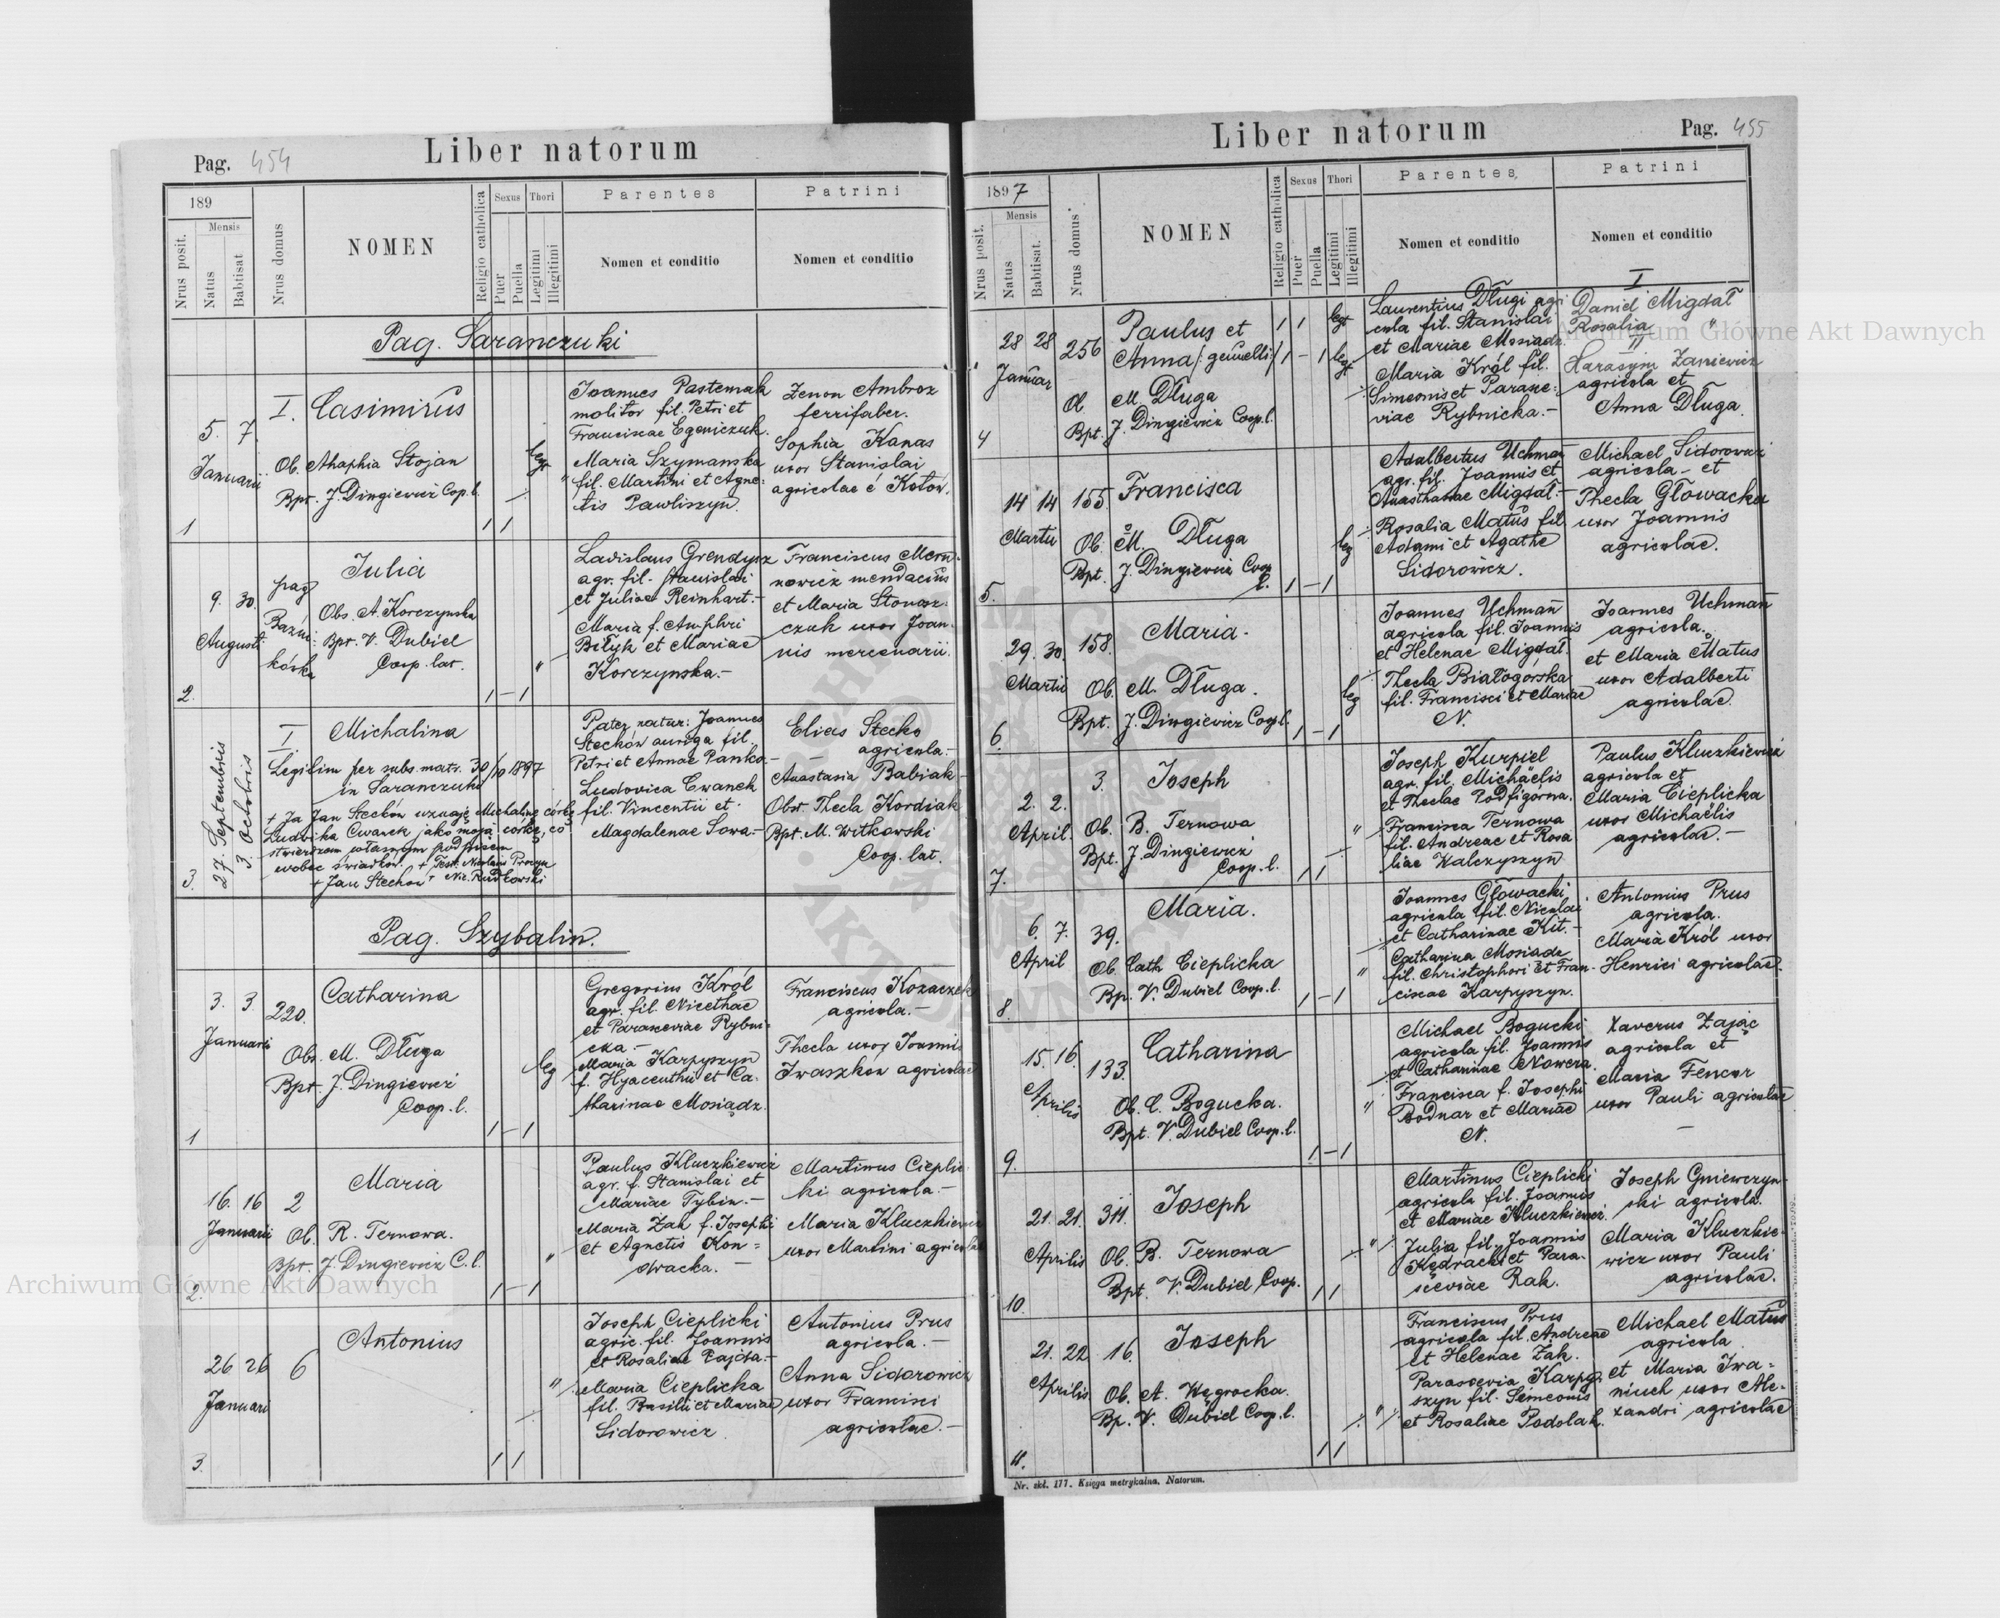 Pag. 454
Liber natorum
189
Nrus posit.
Mensis
Natus
Babtisat
Nrus domus
NOMEN
Religio catholica
Sexus
Puer
Puella
Thori
Legitimi
Illegitimi
Parentes
Nomen et conditio
Patrini
Nomen et conditio
Pag. Saranczuki
1
5. 7.
Januarii
I.
Casimirus
Ob. Ahaphia Stojan
Bpt. J. Dingiewicz Cop. l.
legt
Joannes Pasternak
molitor fil. Petri et
Franciscae Egeniczuk.
Maria Szymanska
fil. Martini et Agne-
tis Pawliszyn.
Zenon Ambroz
ferrifaber.
Sophia Kanas
uxor Stanislai
agricolae é Kotow.
2.
9. 30.
Augusti
pag
Baźni-
kówka
Julia
Obs. A. Korczynska
Bpt. V. Dubiel
Coop. lat.
1 – 1
Ladislaus Grendysz
agr. fil. Stanislai
et Juliae Reinhart.–
Maria f.
Bilyk et Mariae
Korczynska.–
Franciscus
et Maria
czuk uxor Joan-
nis mercenarii.
3.
27. Septembris
3. Octobris
I
Michalina
Legitim per subs. matr. 30/10 1897
in Saranczuki
+ Ja Jan Stecków uznaję Michalinę córkę
Ludwika Cwanek jako moją córkę, co
stwierdzam własnym podpisem
wobec świadków. + Test. Nicolaus
+ Jan Stechow + Nic. Rudkowski
Pater natur: Joannes
Stecków auriga fil.
Petri et Annae Panko.–
Ludovica Cwanek
fil. Vincentii et
Magdalenae Sowa.–
Elias Stecko
agricola.–
Anastasia Babiak–
Obst. Thecla Kordiak
Bpt. M. Witkowski
Coop. lat.
Pag. Szybalin.
1
3. 3.
Januarii
220.
Catharina
Obs. M. Długa
Bpt. J. Dingiewicz
Coop. l.
1 – 1
leg
Gregorius Król
agr. fil. Nicethae
et Parasceviae Rybni-
cka.–
Maria Karpyszyn
f. Hyacenthii et Ca-
tharinae Mosiądz.
Franciscus Kozaczek
agricola.–
Thecla uxor Joannis
Iwaszkow agricolae
2.
16. 16
Januarii
2
Maria
Ob. R. Ternowa.
Bpt. J. Dingiewicz C. l.
1 – 1
Paulus Kluczkiewicz
agr. f. Stanislai et
Mariae Tybin.–
Maria Żak f. Josephi
et Agnetis Kon-
dracka.–
Martinus Cieplic-
ki agricola.–
Maria Kluczkiewicz
uxor Martini agricolae
3.
26 26
Januarii
6
Antonius
1 1
Joseph Cieplicki
agric. fil. Joannis
et Rosaliae Zajda.–
Maria Cieplicka
fil. Basilii et Mariae
Sidorowicz.
Antonius Prus
agricola.–
Anna Sidorowicz
uxor Francisci
agricolae.–
Liber natorum
Pag. 455
1897
Nrus posit.
Mensis
Natus
Babtisat.
Nrus domus
NOMEN
Religio catholica
Sexus
Puer
Puella
Thori
Legitimi
Illegitimi
Parentes
Nomen et conditio
Patrini
Nomen et conditio
4
28 28
Januar
256
Paulus et
Anna /: gemelli :/
Ob. M. Długa
Bpt. J. Dingiewicz Coop. l.
1 1 legt
1 – 1 legt
Laurentius Długi agri-
cola fil. Stanislai
et Mariae Mosiądz.
Maria Król fil.
Simeonis et Parasce-
viae Rybnicka.–
I
Daniel Migdał
Rosalia "
II
Harasym Zaniewicz
agricola et
Anna Długa.
5.
14 14
Martii
155.
Francisca
Ob. M. Długa
Bpt. J. Dingiewicz Coop
l.
1 – 1
leg
Adalbertus Uchman
agr. fil. Joannis et
Anasthasiae Migdał.–
Rosalia Matus fil.
Adami et Agathe
Sidorowicz.
Michael Sidorowicz
agricola – et
Thecla Głowacka
uxor Joannis
agricolae.
6.
29. 30.
Martii
158.
Maria.
Ob. M. Długa.
Bpt. J. Dingiewicz Coop. l.
1 – 1
leg
Joannes Uchman
agricola fil. Joannis
et Helenae Migdał.
Thecla Białogórska
fil. Francisci et Mariae
N.
Joannes Uchman
agricola.
et Maria Matus
uxor Adalberti
agricolae.
7.
2. 2.
April.
3.
Joseph
Ob. B. Ternowa
Bpt. J. Dingiewicz
Coop. l.
1 1
Joseph Kurpiel
agr. fil. Michaelis
et Theclae Podfigórna.
Francisca Ternowa
fil. Andreae et Rosa
liae Walczyszyn
Paulus Kluczkiewicz
agricola et
Maria Cieplicka
uxor Michaelis
agricolae.–
8.
6. 7.
April
39.
Maria.
Ob. Cath. Cieplicka
Bp. V. Dubiel Coop. l.
1 – 1
Joannes Głowacki
agricola fil. Nicolai
et Catharinae Kit.–
Catharina Mosiadz
fil. Christophori et Fran-
ciscae Karpyszyn.
Antonius Prus
agricola.
Maria Król uxor
Henrici agricolae.
9.
15. 16.
Aprilis
133.
Catharina
Ob. C. Bogucka.
Bpt. V. Dubiel Coop. l.
1 – 1
Michael Bogucki
agricola fil. Joannis
et Catharinae Nowera.
Francisca f. Josephi
Bodnar et Mariae
N.
Xaverus Zając
agricola et
Maria Fencor
uxor Pauli agricolae
–
10.
21. 21.
Aprilis
311.
Joseph
Ob. B. Ternowa
Bpt. V. Dubiel Coop.
1 1
Martinus Cieplicki
agricola fil. Joannis
et Mariae Kluczkiewicz.
Julia fil. Joannis
Kędracki et Para-
sceviae Rak.
Joseph Gniewczyn-
ski agricola.
Maria Kluczkie-
wicz uxor Pauli
agricolae.
11.
21. 22
Aprilis
16.
Joseph
Ob. A. Węgrocka.
Bp. V. Dubiel Coop. l.
1 1
Franciscus Prus
agricola fil. Andreae
et Helenae Żak.
Parascevia Karpy-
szyn fil. Simeonis
et Rosaliae Podolak.
Michael Matus
agricola
et Maria Iwa-
niuch uxor Ale-
xandri agricolae
Nr. skł. 177. Księga metrykalna, Natorum.
Archiwum Główne Akt Dawnych
Archiwum Główne Akt Dawnych